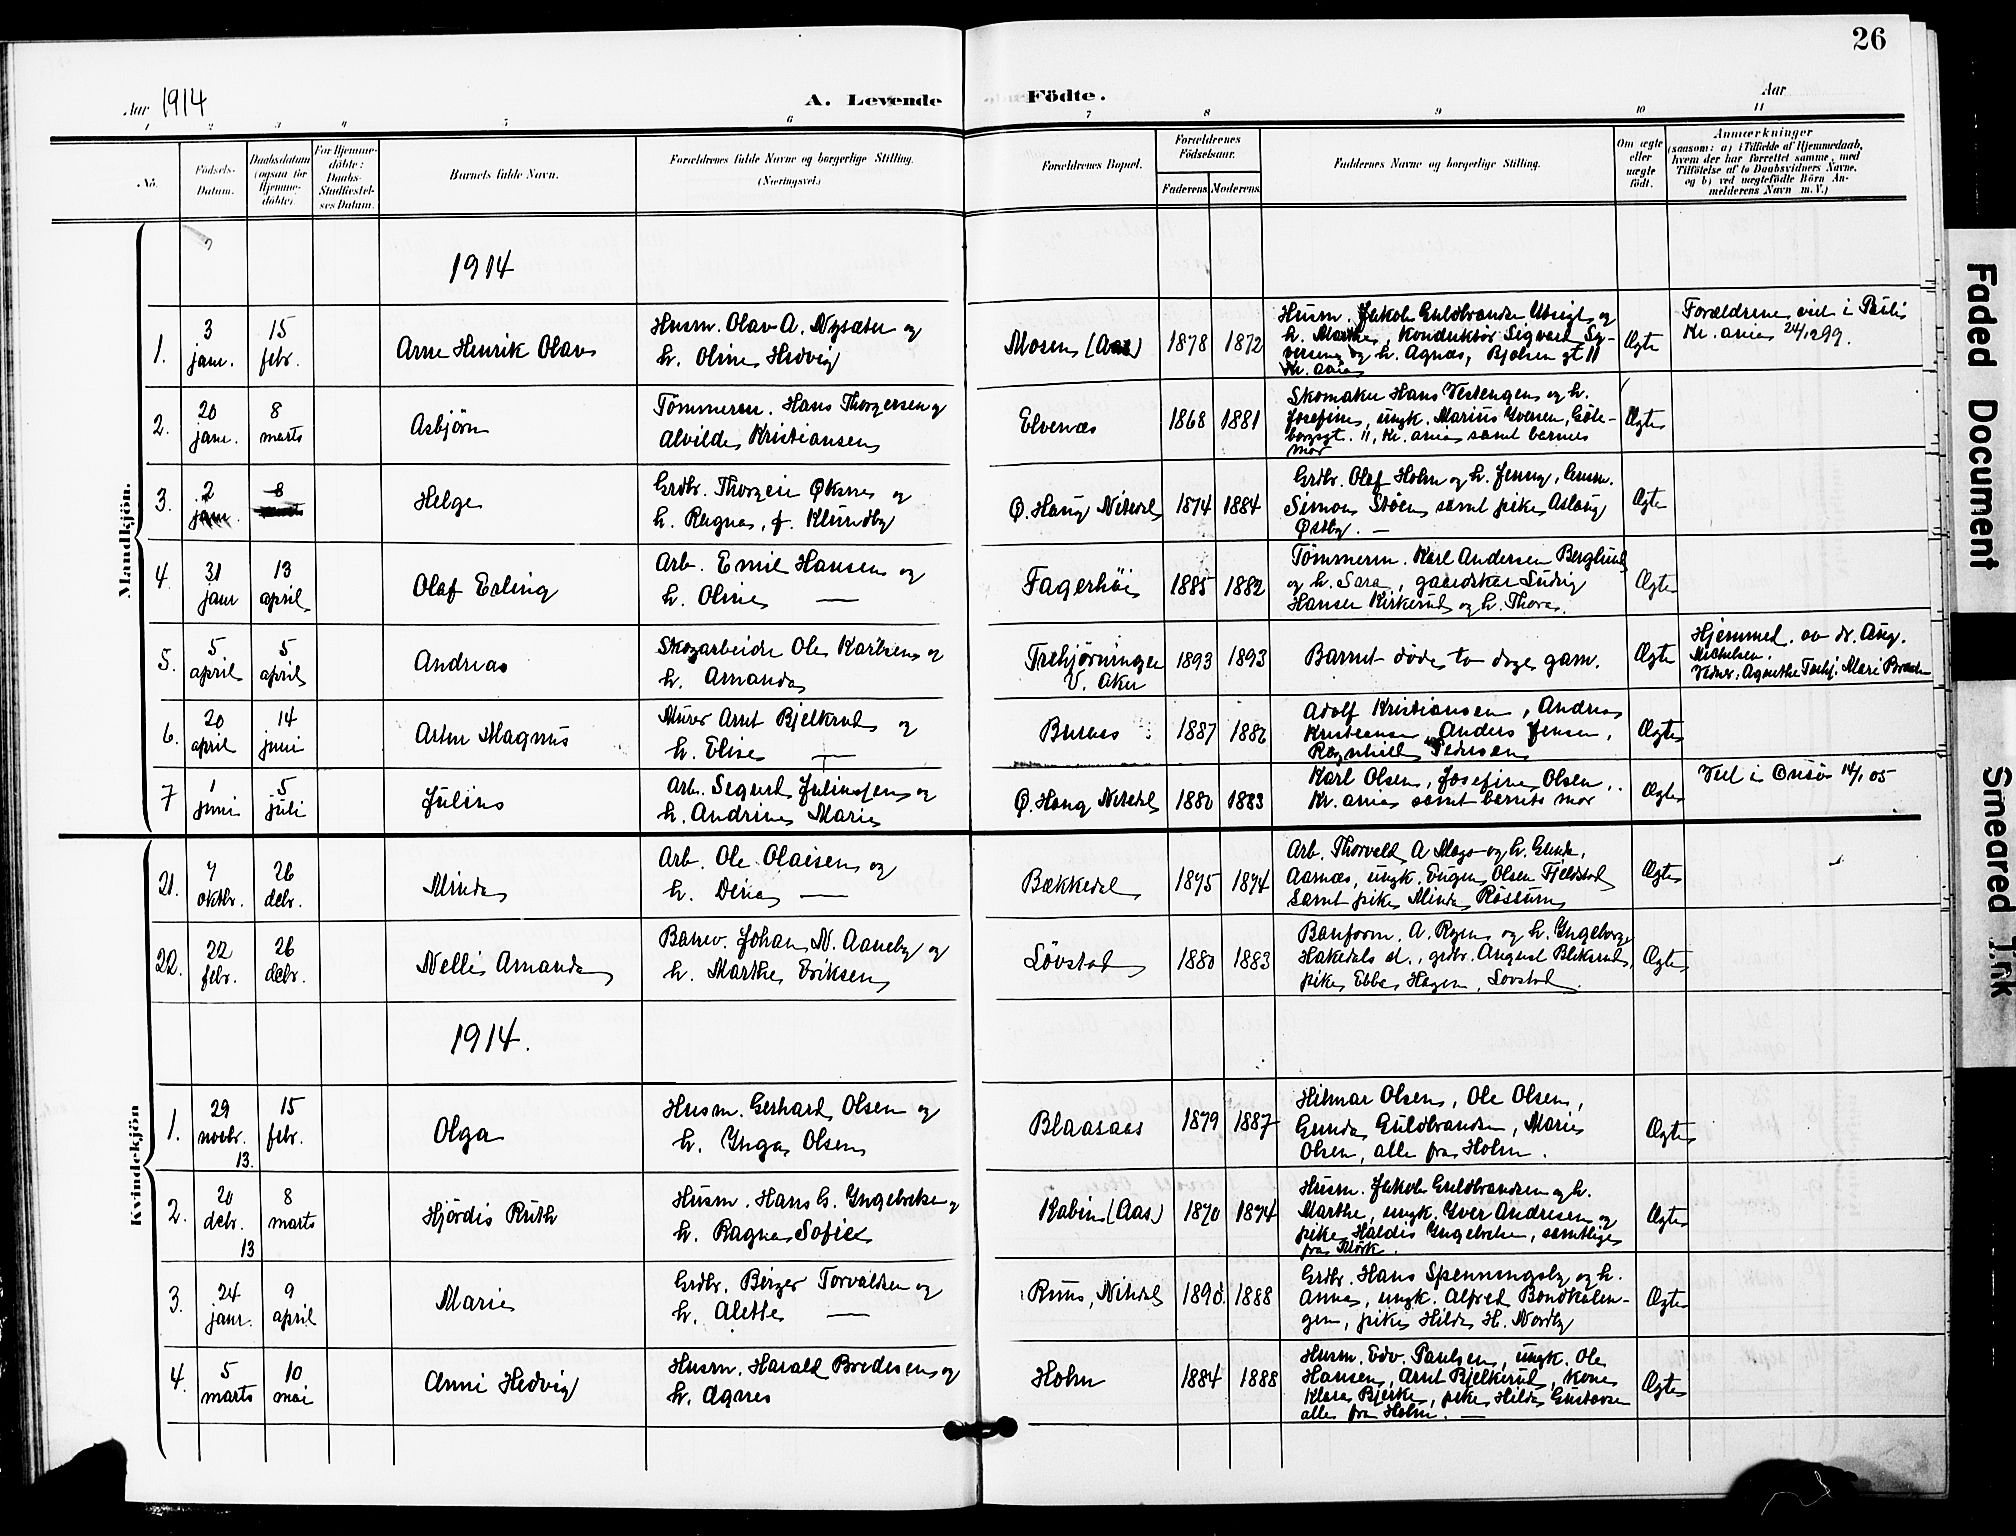 26
Aar 1914
A. Levende Födte.
Aar
1 2 3 4 5 6 7 8 9 10 11
No.
Födsels-
Datum.
Daabsdatum
(ogsaa for
Hjemme-
döbte).
For Hjemme-
döbte:
Daabs-
Stadfæstel-
ses Datum.
Barnets fulde Navn.
Forældrenes fulde Navne og borgerlige Stilling.
(Næringsvei.)
Forældrenes Bopæl.
Forældrenes
Födselsaar.
Faderens. Moderens.
Faddernes Navne og borgerlige Stilling.
Om ægte
eller
uægte
födt.
Anmærkninger
(saasom: a) i Tilfælde af Hjemmedaab,
hvem der har forrettet samme, med
Tilföielse af to Daabsvidners Navne,
og b) ved uægtefödte Börn An-
melderens Navn m. V.)
Mandkjön.
1914
1.
3
janr.
15
febr.
Arne Henrik Olav
Husm. Olav A. Nysæter og
h. Oline Hedvig
Mosen (Aas)
1878
1872
Husm. Jakob Guldbrandsen Utsigt og
h. Marthe, Konduktør Sigvard Sy-
versen og h. Agnæs, Bjølsen gt 11
Kr.ania
Ægte
Forældrene viet i Pauli
Kr.ania 24/12 99.
2.
20
janr.
8
marts
Asbjørn
Tømmerm. Hans Thorgersen og
Alvilde Kristiansen
Elvenæs
1868
1881
Skomaker Hans Vestengen og h.
Josefine, ungk. Marius Iversen, Göte-
borggt. 11, Kr.ania samt barnets
mor
Ægte
3.
2
janr.
8
marts
Helge
Grdbr. Thorgeir Øksnes og
h. Ragna, f. Klundby
Ø. Haug Nitedal
1874
1884
Grdbr. Olaf Holm og h. Jenny,
Simon Støen samt pike Aslaug
Østby. —
Ægte
4.
31
janr
13
april
Olaf Erling
Arb. Emil Hansen og
h. Oline —
Fagerhöi
1885
1882
Tømmerm. Karl Andersen Berglund
og h. Sara, gaardskar Ludvig
Hansen Kirkerud og h. Thora.
Ægte
5.
5
april
5
april
Andreas
Skogarbeider Ole Karlsen og
h. Amanda
Trehjørningen
V. Aker
1893
1893
Barnet døde to dage gam.
Ægte
Hjemmed. av dr. Aug.
Michelsen.
Vidner: Agnethe Trehj. Mari
6.
20
april
14
juni
Artur Magnus
Murer Arnt Bjelkerud og
h. Elise —
Buraas
1887
1882
Adolf Kristiansen, Andrea
Kristiansen, Anders Jensen,
Ragnhild Pedersen
Ægte
7
1
juni
5
juli
Julius
Arb. Sigurd Juliussen og
h. Andrine Marie
Ø. Haug Nitedal
1880
1883
Karl Olsen, Josefine Olsen,
Kr.ania samt barnets mor
Ægte
Viet i 14/1 05
Kvindekjön
21.
7
oktbr.
26
debr.
Minda
Arb. Ole Olaisen og
h. Dina —
Bækkedal
1875
1874
Arb. Thorvald A Mago og h. Gunda,
Aarnæs, ungk. Eugen Olsen Fjeldstad
samt pike Minda Røssum
Ægte
22.
22
febr.
26
debr.
Nelli Amanda
Banev. Johan N. Aaneby og
h. Marthe Eriksen
Løvstad
1880
1883
Banform. A. Ryen og h. Ingeborg
Hakedals st., grdbr. August Bliksrud,
pike Ebba Hagen, Løvstad.
Ægte
1914.
1.
29
novbr.
13.
15
febr.
Olga
Husm. Gerhard Olsen og
h. Inga Olsen
Blaasaas
1879
1887
Hilmar Olsen, Ole Olsen,
Gunda Guldbrandsen, Marie
Olsen, alle fra Holm.
Ægte
2.
20
debr.
13
8
marts
Hjördis Ruth
Husm. Hans G. Yngelvelsen og
h. Ragna Sofie
Kabin (Aas)
1870
1874
Husm. Jakob Guldbrandsen og h.
Marthe, ungk. Yver Andresen og
pike Haldis Yngelvelsen, samtlige
fra Mørk.
Ægte
3.
24
janr.
9
april
Marie
Grdbr. Birger Torvaldsen og
h. Alette —
Ruus, Nitedal
1890
1888
Grdbr. Hans Spenningsby og h.
Anna, ungk. Alfred Bondkalen-
gen, pike Hilda H. Nordby
Ægte
4.
5
marts
10
mai
Anni Hedvig
Husm. Harald Bredesen og
h. Agnes
Holm
1884
1888
Husm. Edv. Paulsen, ungk. Ole
Hansen, Arnt Bjelkerud, kone
Klara Bjerke, pike Hilda Gustavsen
alle fra Holm. —
Ægte
Faded Document
Smeared Ink